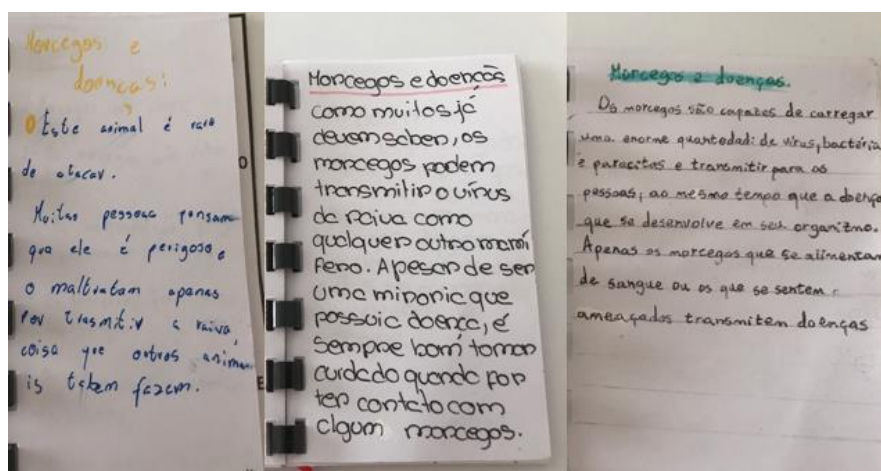 Morcegos e
doenças:
Este animal é raro
de atacar.
Muitas pessoas pensam
que ele é perigoso e
o maltratam apenas
por trasmitir a raiva,
coisa que outros anima
is tabem fazem.
Morcegos e doenças
como muitos já
devem saber, os
morcegos podem
transmitir o vírus
da raiva como
qualquer outro mamí
fero. Apesar de ser
uma minoria que
possui a doença, é
sempre bom tomar
cuidado quando for
ter contato com
algum morcegos.
Morcegos e doenças.
Os morcegos são capazes de carregar
uma enorme quantedadi de vírus, bactéria
e paracitas e transmitir para as
pessoas, ao mesmo tempo que a doença
que se desenvolve em seu organizmo.
Apenas os morcegos que se alimentam
de sangue ou os que se sentem
ameaçados transmitem doenças